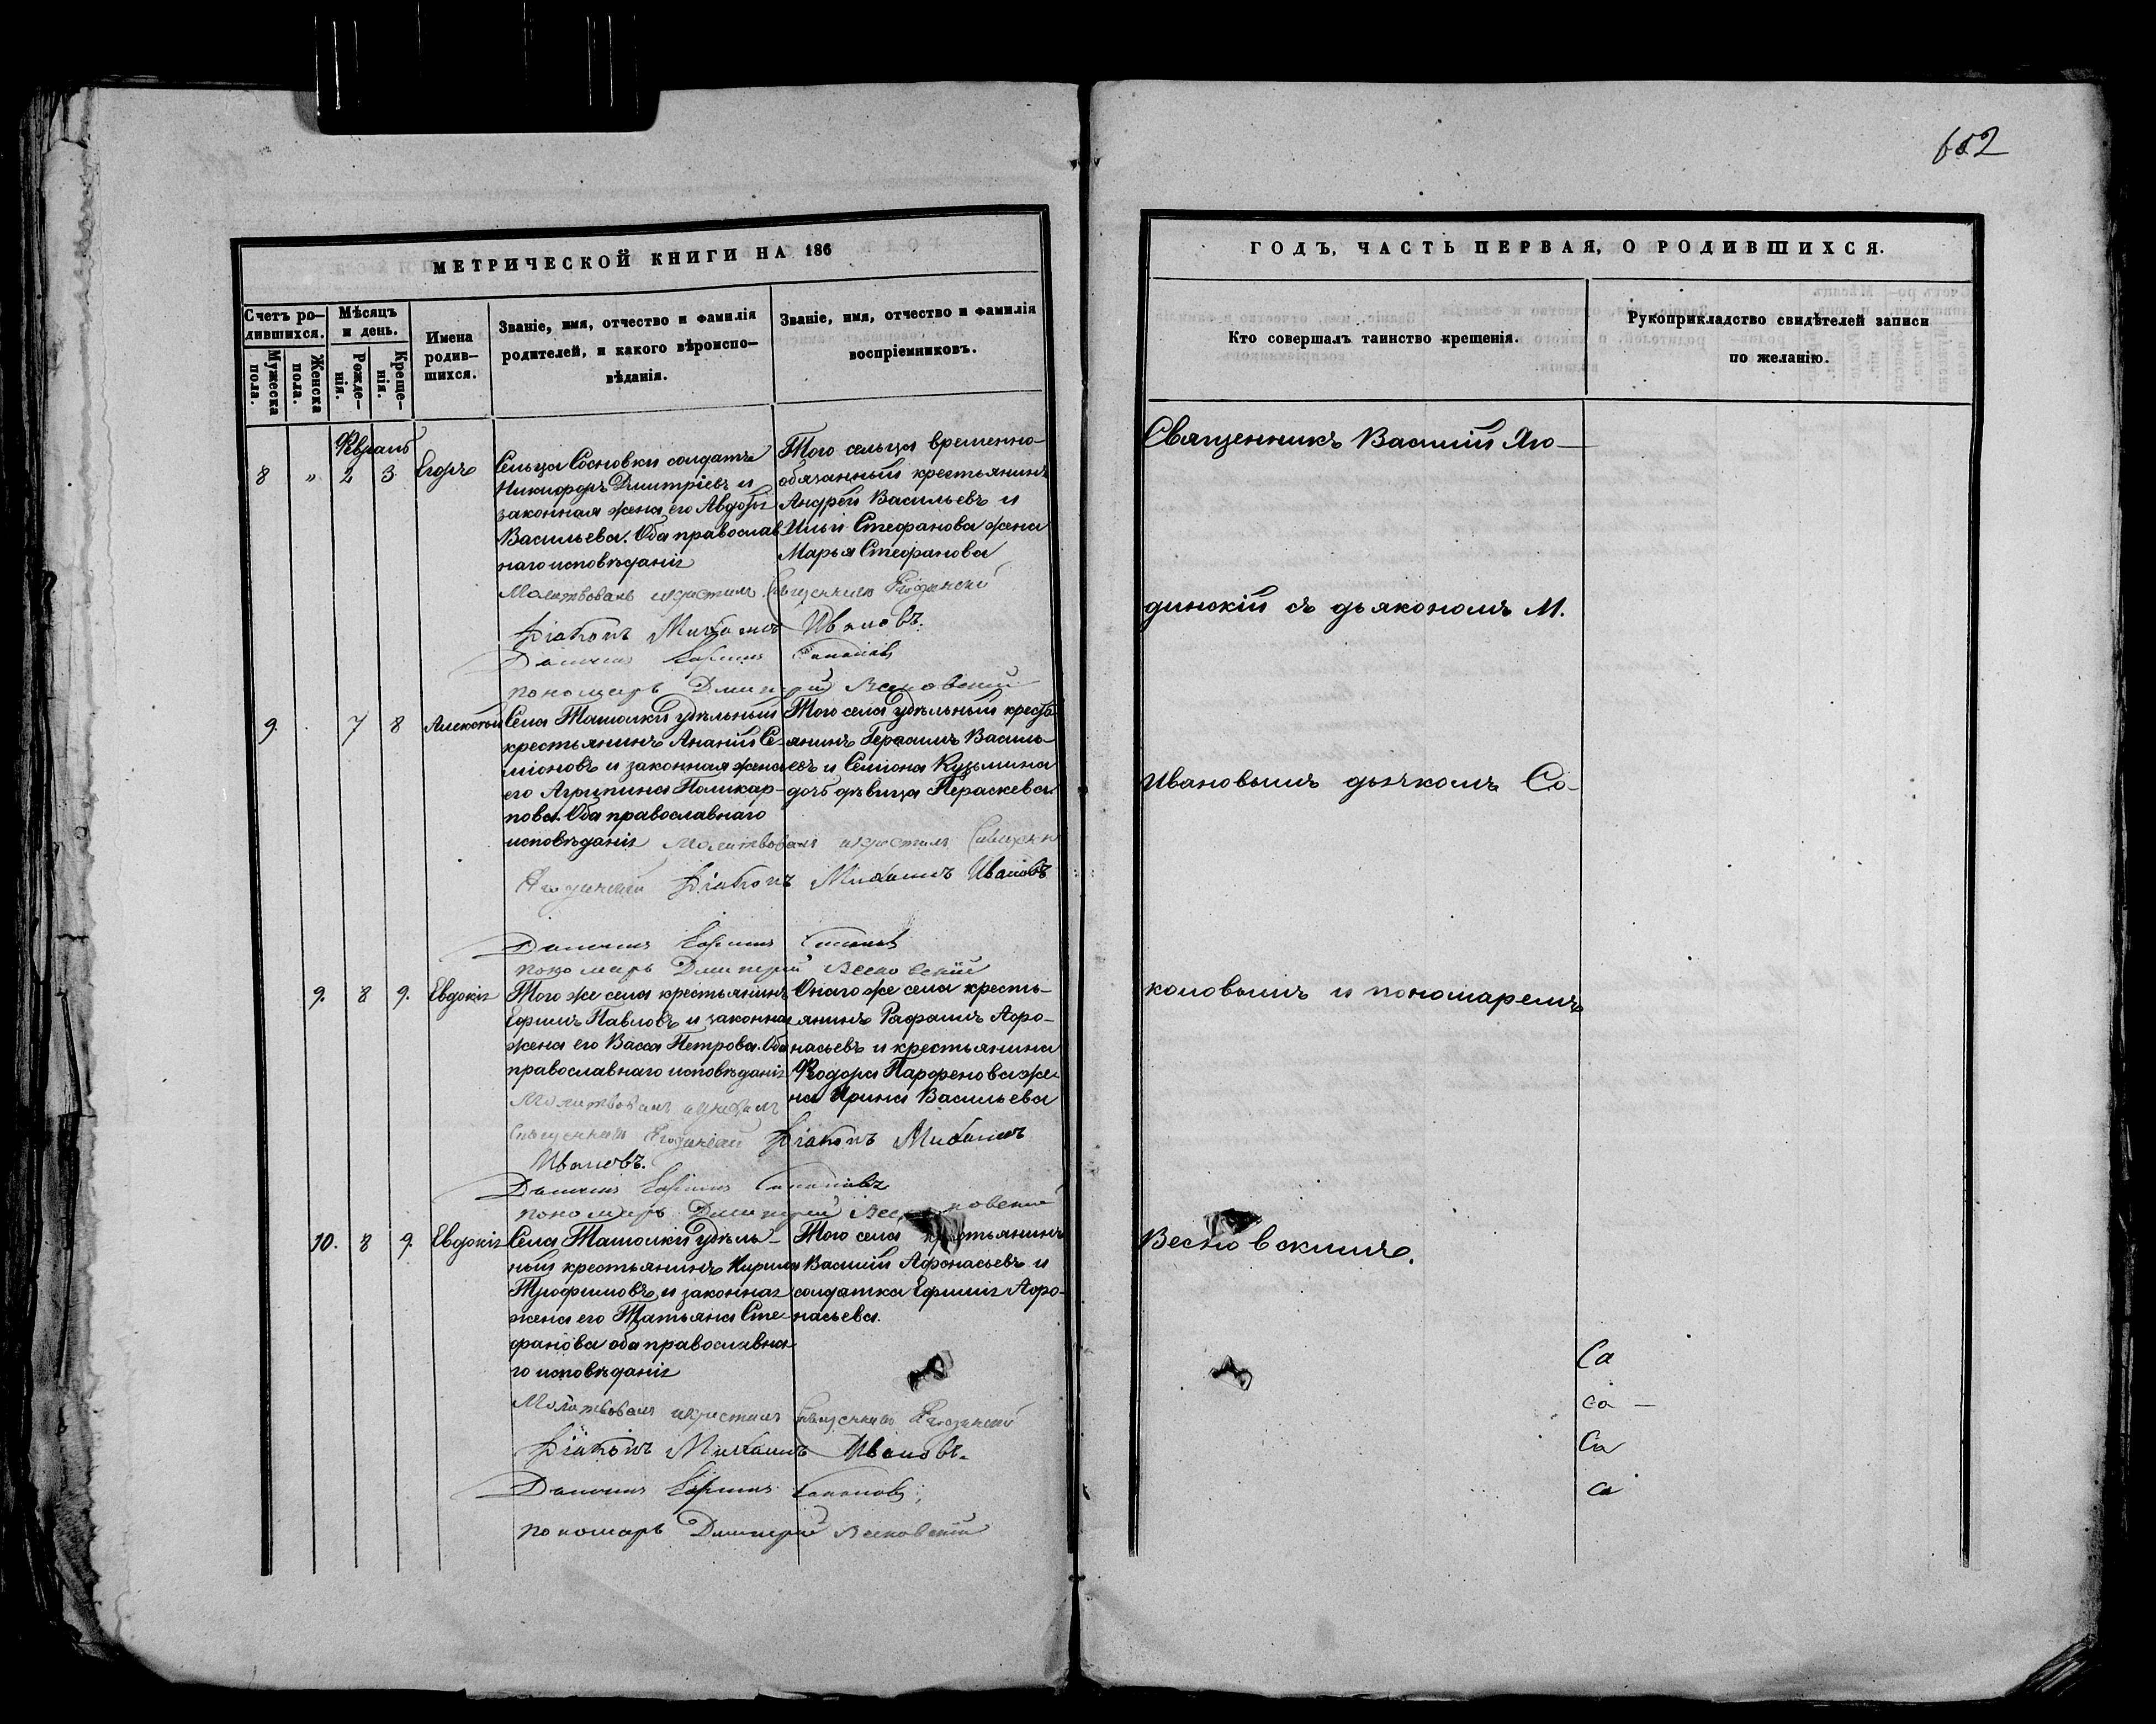 652
МЕТРИЧЕСКОЙ КНИГИ НА 186
Счетъ ро-
дившихся.
Мужеска
пола.
Женска
пола.
Мѣсяцъ
и день.
Рожде-
нія.
Креще-
нія.
Имена
родив-
шихся.
Званіе, имя, отчество и фамилія
родителей, и какого вѣроиспо-
вѣданія.
Званіе, имя, отчество и фамилія
воспріемниковъ.
8 " 2 3 Егоръ
Сельца Сосновки солдатъ
Никифоръ Дмитріевъ и
законная жена его Авдотія
Васильева. Оба православ
наго исповѣданія
Того сельца временно-
обязанный крестьянинъ
Андрей Васильевъ и
Ильи Стефанова жена
Марья Стефанова
Молитвовалъ и крестилъ Священникъ Ягодинскій
Діаконъ Михаилъ Ивановъ.
Дьячекъ Ефимъ
пономарь Дмитрій Весновскій
9. 7 8 Алексѣй
Села Ташолки удѣльный
крестьянинъ Ананій Се-
міоновъ и законная жена
его Агрипина Поликар-
пова. Оба православнаго
исповѣданія
Того села удѣльный кресть
янинъ Герасимъ Василь-
евъ и Семіона Кузьмина
дочь дѣвица Параскева.
Молитвовалъ и крестилъ
Ягодинскій Діаконъ Михаилъ Ивановъ
Дьячекъ Ефимъ
пономарь Дмитрій Весновскій
9. 8 9. Евдокія
Того же села крестьянинъ
Ефимъ Павловъ и законная
жена его Васса Петрова. Оба
православнаго исповѣданія
Онаго же села кресть-
янинъ Рафаилъ Афо-
насьевъ и крестьянина
Ѳеодора Парфенова же-
на Ирина Васильева
Молитвовалъ и крестилъ
Священникъ Ягодинскій Діаконъ Михаилъ
Ивановъ.
Дьячекъ Ефимъ
пономарь Дмитрій Весновскій
10. 8 9. Евдокія
Села Ташолки удѣль-
ный крестьянинъ Кирила
Трофимовъ и законная
жена его Татьяна Сте-
фанова оба православна
го исповѣданія
Того села крестьянинъ
Василій Афонасьевъ и
солдатка Ефимія Афо-
насьева.
Молитвовалъ и крестилъ Священникъ Ягодинскій
Діаконъ Михаилъ Ивановъ.
Дьячекъ Ефимъ
пономарь Дмитрій Весновскій
ГОДЪ, ЧАСТЬ ПЕРВАЯ, О РОДИВШИХСЯ.
Кто совершалъ таинство крещенія.
Рукоприкладство свидѣтелей записи
по желанію.
Священникъ Василій Яго-
динскій съ дьякономъ М.
Ивановымъ дьячкомъ Со-
коловымъ и пономаремъ
Весновскимъ.
Са
са -
Са
са